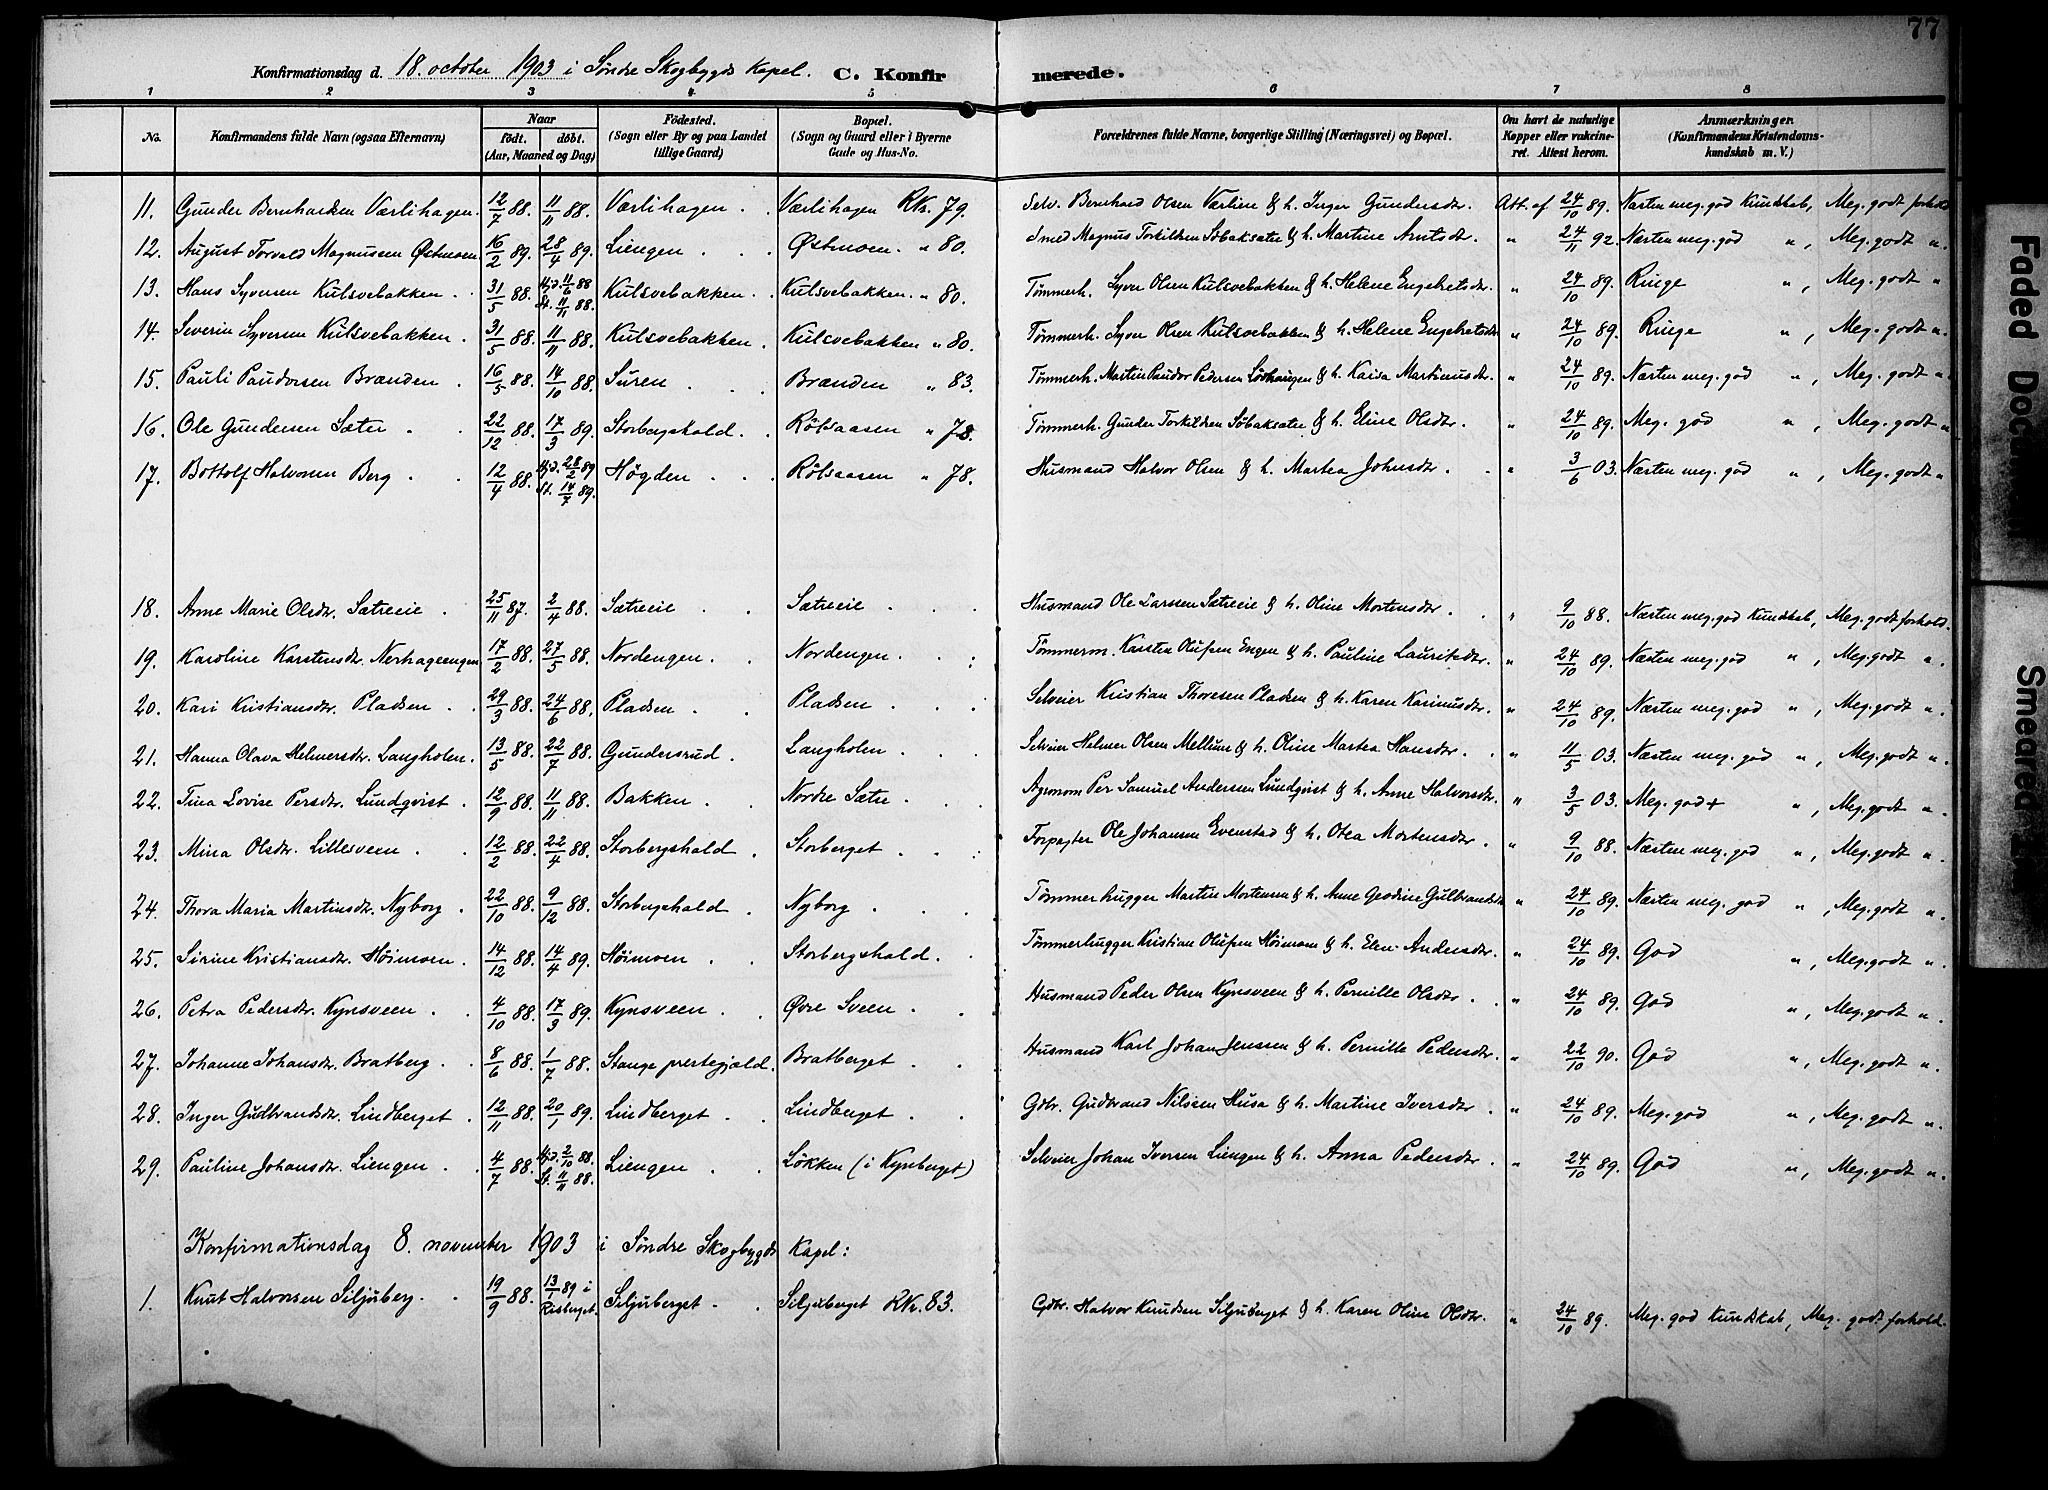 77
Konfirmationsdag d. 18. october 1903 i Søndre Skogbygds Kapel. C. Konfirmerede.
1 2 3 4 5 6 7 8
No. Konfirmandens fulde Navn (ogsaa Efternavn) Naar født. døbt. (Aar, Maaned og Dag) Fødested. (Sogn eller By og paa Landet tillige Gaard) Bopæl. (Sogn og Gaard eller i Byerne Gade og Hus-No. Forældrenes fulde Navne, borgerlige Stilling (Næringsvei) og Bopæl. Om havt de naturlige Kopper eller vakcineret. Attest herom. Anmærkninger. (Konfirmandens Kristendomskundskab m. V.)
11. Gunder Bernhardsen Værlihagen. 12/7 88. 11/11 88. Værlihagen . . Værlihagen RKr. 79. Selv. Bernhard Olsen Værlien & h. Inger Gundersdtr. Att. af 24/10 89. Næsten meg. god Kundskab, Meg. godt forhold
12. August Torvald Magnussen Østmoen. 16/2 89. 28/4 89. Liengen . . Østmoen. " 80. Smed Magnus Torkildsen Søbaksæter & h. Martine Arntsdtr. " 24/11 92 Næsten meg. god ", Meg. godt ".
13. Hans Syversen Kulsvebakken . 31/5 88. Hjd. 11/6 88 St. 11/11 88. Kulsvebakken . Kulsvebakken. " 80. Tømmerh. Syver Olsen Kulsvebakken & h. Helene Engebretsdtr. " 24/10 89. Ringe ", Meg. godt "
14. Severin Syversen Kulsvebakken . 31/5 88. 11/11 88. Kulsvebakken . Kulsvebakken " 80. Tømmerh. Syver Olsen Kulsvebakken & h. Helene Engebretsdtr " 24/10 89. Ringe ", Meg. godt ".
15. Pauli Paudorsen Brænden . 16/5 88. 14/10 88. Suren . . Brænden " 83. Tømmerh. Martin Paudor Pedersen & h. Kaisa Martinusdtr. " 24/10 89. Næsten meg. god ", Meg. godt ".
16. Ole Gundersen Sæter . . 22/12 88. 17/3 89. Storbergshold . Røtsaasen " 78. Tømmerh. Gunder Torkildsen Søbaksæter & h. Eline Olsdtr. " 24/10 89. Meg. god ", Meg. godt "
17. Bottolf Halvorsen Berg . . 12/4 88. Hjd. 28/2 89 St. 14/7 89. Høgden . . Røtsaasen " 78. Husmand Halvor Olsen & h. Martea Johnsdtr. . " 3/6 03. Næsten meg. god ", Meg. godt "
18. Anne Marie Olsdtr. Sætreeie . 25/11 87. 2/4 88. Sætreeie . . Sætreeie . . . Husmand Ole Larssen Sætreeie & h. Oline Mortensdtr. . " 9/10 88. Næsten meg. god Kundskab, Meg. godt forhold.
19. Karoline Karstensdtr. Nerhageengen 17/2 88. 27/5 88. Nordengen . . Nordengen . . . Tømmerm. Karsten Olufsen Engen & h. Pauline Lauritsdtr. " 24/10 89. Næsten meg. god ", Meg. godt ".
20. Kari Kristiansdtr. Pladsen . . 29/3 88. 24/6 88. Pladsen . . Pladsen . . . Selveier Kristian Thoresen Pladsen & h. Karen Karinusdtr. " 24/10 89. Næsten meg. god ", Meg. godt ".
21. Hanna Olava Helmersdtr. Langholen. 13/5 88. 22/7 88. Gundersrud . Langholen . . Selveier Helmer Olsen Mellum & h. Oline Martea Hansdtr. . " 11/5 03. Næsten meg. god ", Meg. godt ".
22. Tina Lovise Persdtr. Lundqvist . 12/9 88. 11/11 88. Bakken . . Nordre Sætre . . Agronom Per Samuel Anderssen Lundqvist & h. Anne Halvorsdtr. " 3/5 03. Meg. god+ ", Meg. godt ".
23. Mina Olsdtr. Lillesveen . . 12/2 88. 22/4 88. Storbergshold . Storberget . . . Forpagter Ole Johansen Evenstad & h. Otea Mortensdtr. . " 9/10 88. Næsten meg. god ", Meg. godt ".
24. Thora Maria Martinsdtr. Nyborg . 22/10 88. 9/12 88. Storbergshold . Nyborg . . . Tømmerhugger Martin Mortensen & h. Anne Geodine Gulbrandsdtr " 24/10 89. Næsten meg. god ", Meg. godt ".
25. Sirine Kristiansdtr. Høimoen . 14/12 88. 14/4 89. Høimoen . . Storbergshold . . Tømmerhugger Kristian Olufsen Høimoen & h. Elen Andersdtr. " 24/10 89. God ", Meg. godt ".
26. Petra Pedersdtr. Kynsveen . . 4/10 88. 17/3 89. Kynsveen . . Øvre Sveen . . Husmand Peder Olsen Kynsveen & h. Pernille Olsdtr . . " 24/10 89. God ", Meg. godt ".
27. Johanne Johansdtr. Bratberg . . 8/6 88. 1/7 88. Stange prestegjæld. Bratberget . . Husmand Karl Johan Jenssen & h. Pernille Pedersdtr. " 22/10 90. God ", Meg. godt ".
28. Inger Gudbrandsdtr. Lindberget . 12/11 88. 20/1 89. Lindberget . . Lindberget . . Gdbr. Gudbrand Nilssen Husa & h. Martine Iversdtr . " 24/10 89. Meg. god ", Meg. godt ".
29. Pauline Johansdtr. Liengen . . 4/7 88. Hjd. 2/10 88. St. 11/11 88. Liengen . . Løkken (i Kynberget) Selveier Johan Iversen Liengen & h. Anna Pedersdtr. . " 24/10 89. God ", Meg. godt ".
Konfirmationsdag 8. november 1903 i Søndre Skogbygds Kapel:
1. Knut Halvorsen Siljuberg. . 19/9 88. 13/1 89 i Risberget. Siljuberget . . Siljuberget RKr. 83. Gdbr. Halvor Knudsen Siljuberget & h. Karen Oline Olsdtr. " 24/10 89. Meg. god kundskab, Meg. godt forhold.
Faded Doc
Smeared